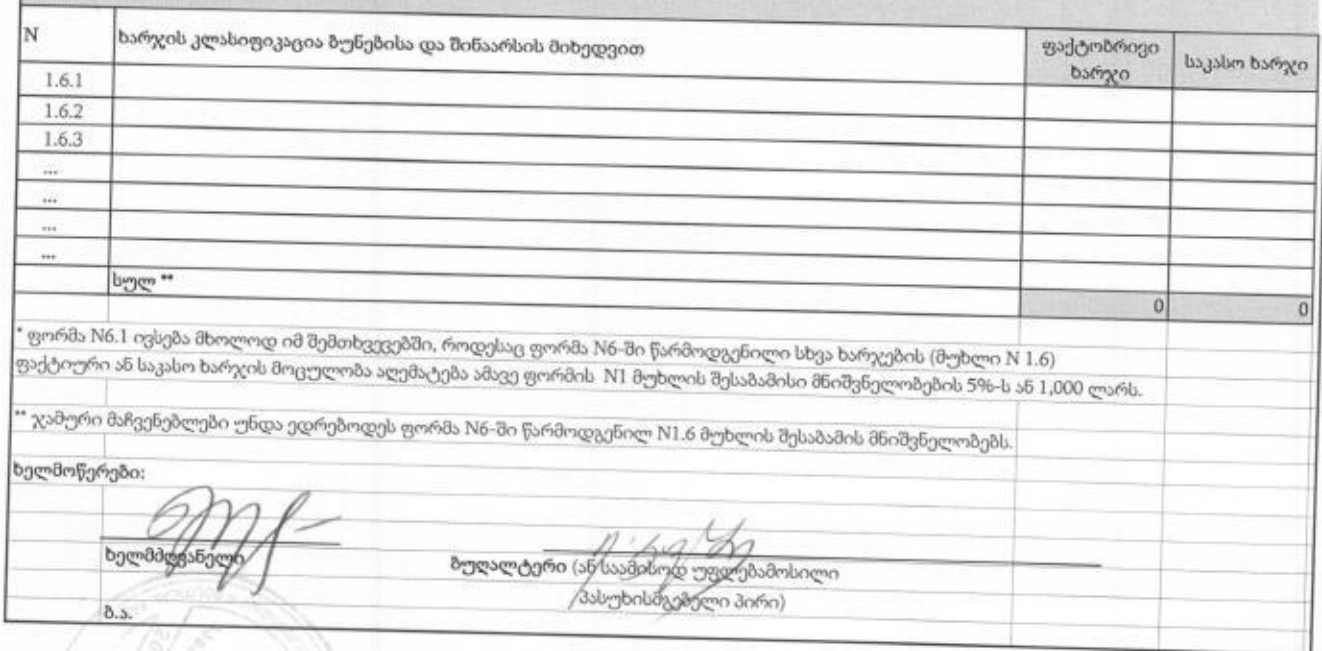 N ხარჯის კლასიფიკაცია ბუნებისა და შინაარსის მიხედვით ფაქტობრივი ხარჯი საკასო ხარჯი
1.6.1
1.6.2
1.6.3
...
...
...
...
სულ **
0 0
* ფორმა N6.1 ივსება მხოლოდ იმ შემთხვევებში, როდესაც ფორმა N6-ში წარმოდგენილი სხვა ხარჯების (მუხლი N 1.6)
ფაქტიური ან საკასო ხარჯის მოცულობა აღემატება ამავე ფორმის N1 მუხლის შესაბამისი მნიშვნელობების 5%-ს ან 1,000 ლარს.
** ჯამური მაჩვენებლები უნდა ედრებოდეს ფორმა N6-ში წარმოდგენილ N1.6 მუხლის შესაბამის მნიშვნელობებს.
ხელმოწერები:
ხელმძღვანელი
ბუღალტერი (ან საამისოდ უფლებამოსილი
პასუხისმგებელი პირი)
ბ.ა.